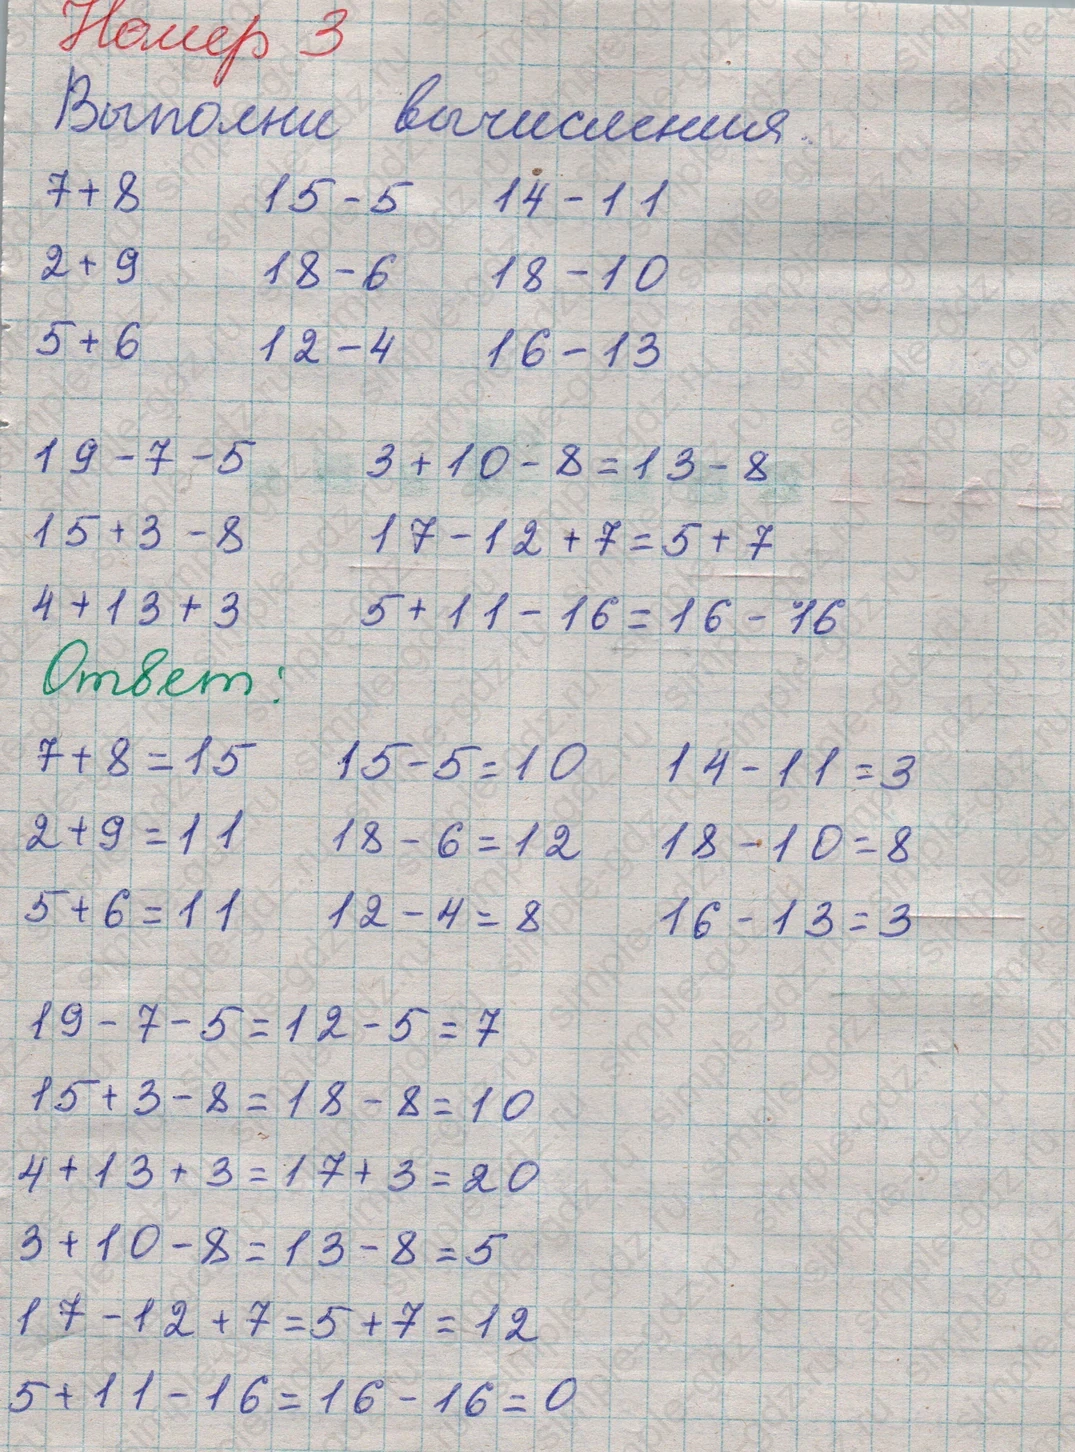 Номер 3
Выполни вычисления.
7+8 15-5 14-11
2+9 18-6 18-10
5+6 12-4 16-13
19-7-5 3+10-8=13-8
15+3-8 17-12+7=5+7
4+13+3 5+11-16=16-16
Ответ:
7+8=15 15-5=10 14-11=3
2+9=11 18-6=12 18-10=8
5+6=11 12-4=8 16-13=3
19-7-5=12-5=7
15+3-8=18-8=10
4+13+3=17+3=20
3+10-8=13-8=5
17-12+7=5+7=12
5+11-16=16-16=0
simple-gdz.ru